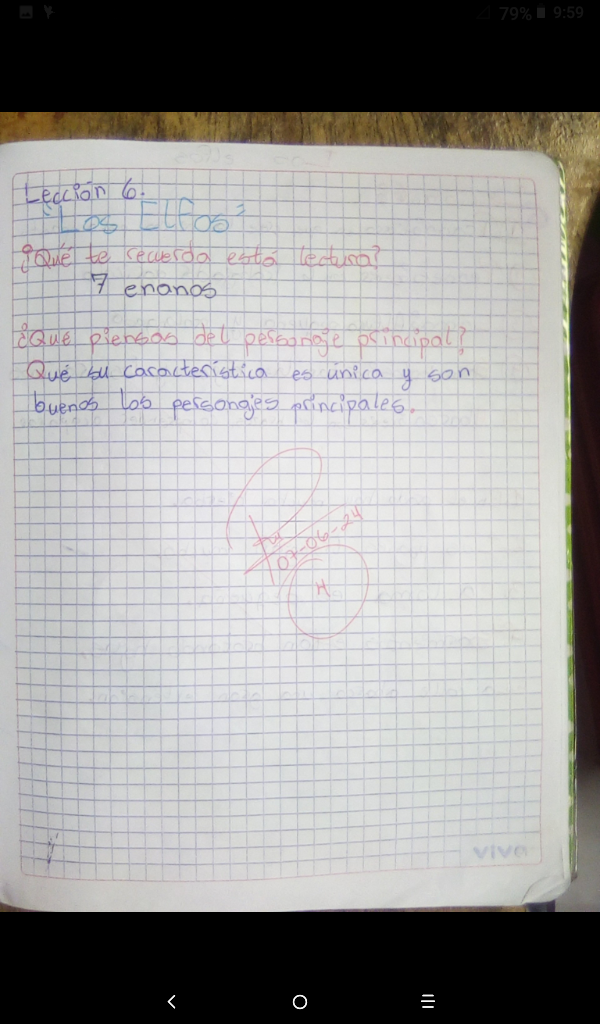 79% 9:59
Lección 6.
"Los Elfos"
¿Qué te recuerda está lectura?
7 enanos
¿Qué piensas del personaje principal?
Qué su característica es única y son
buenos los personajes principales.
07-06-24
H
viva